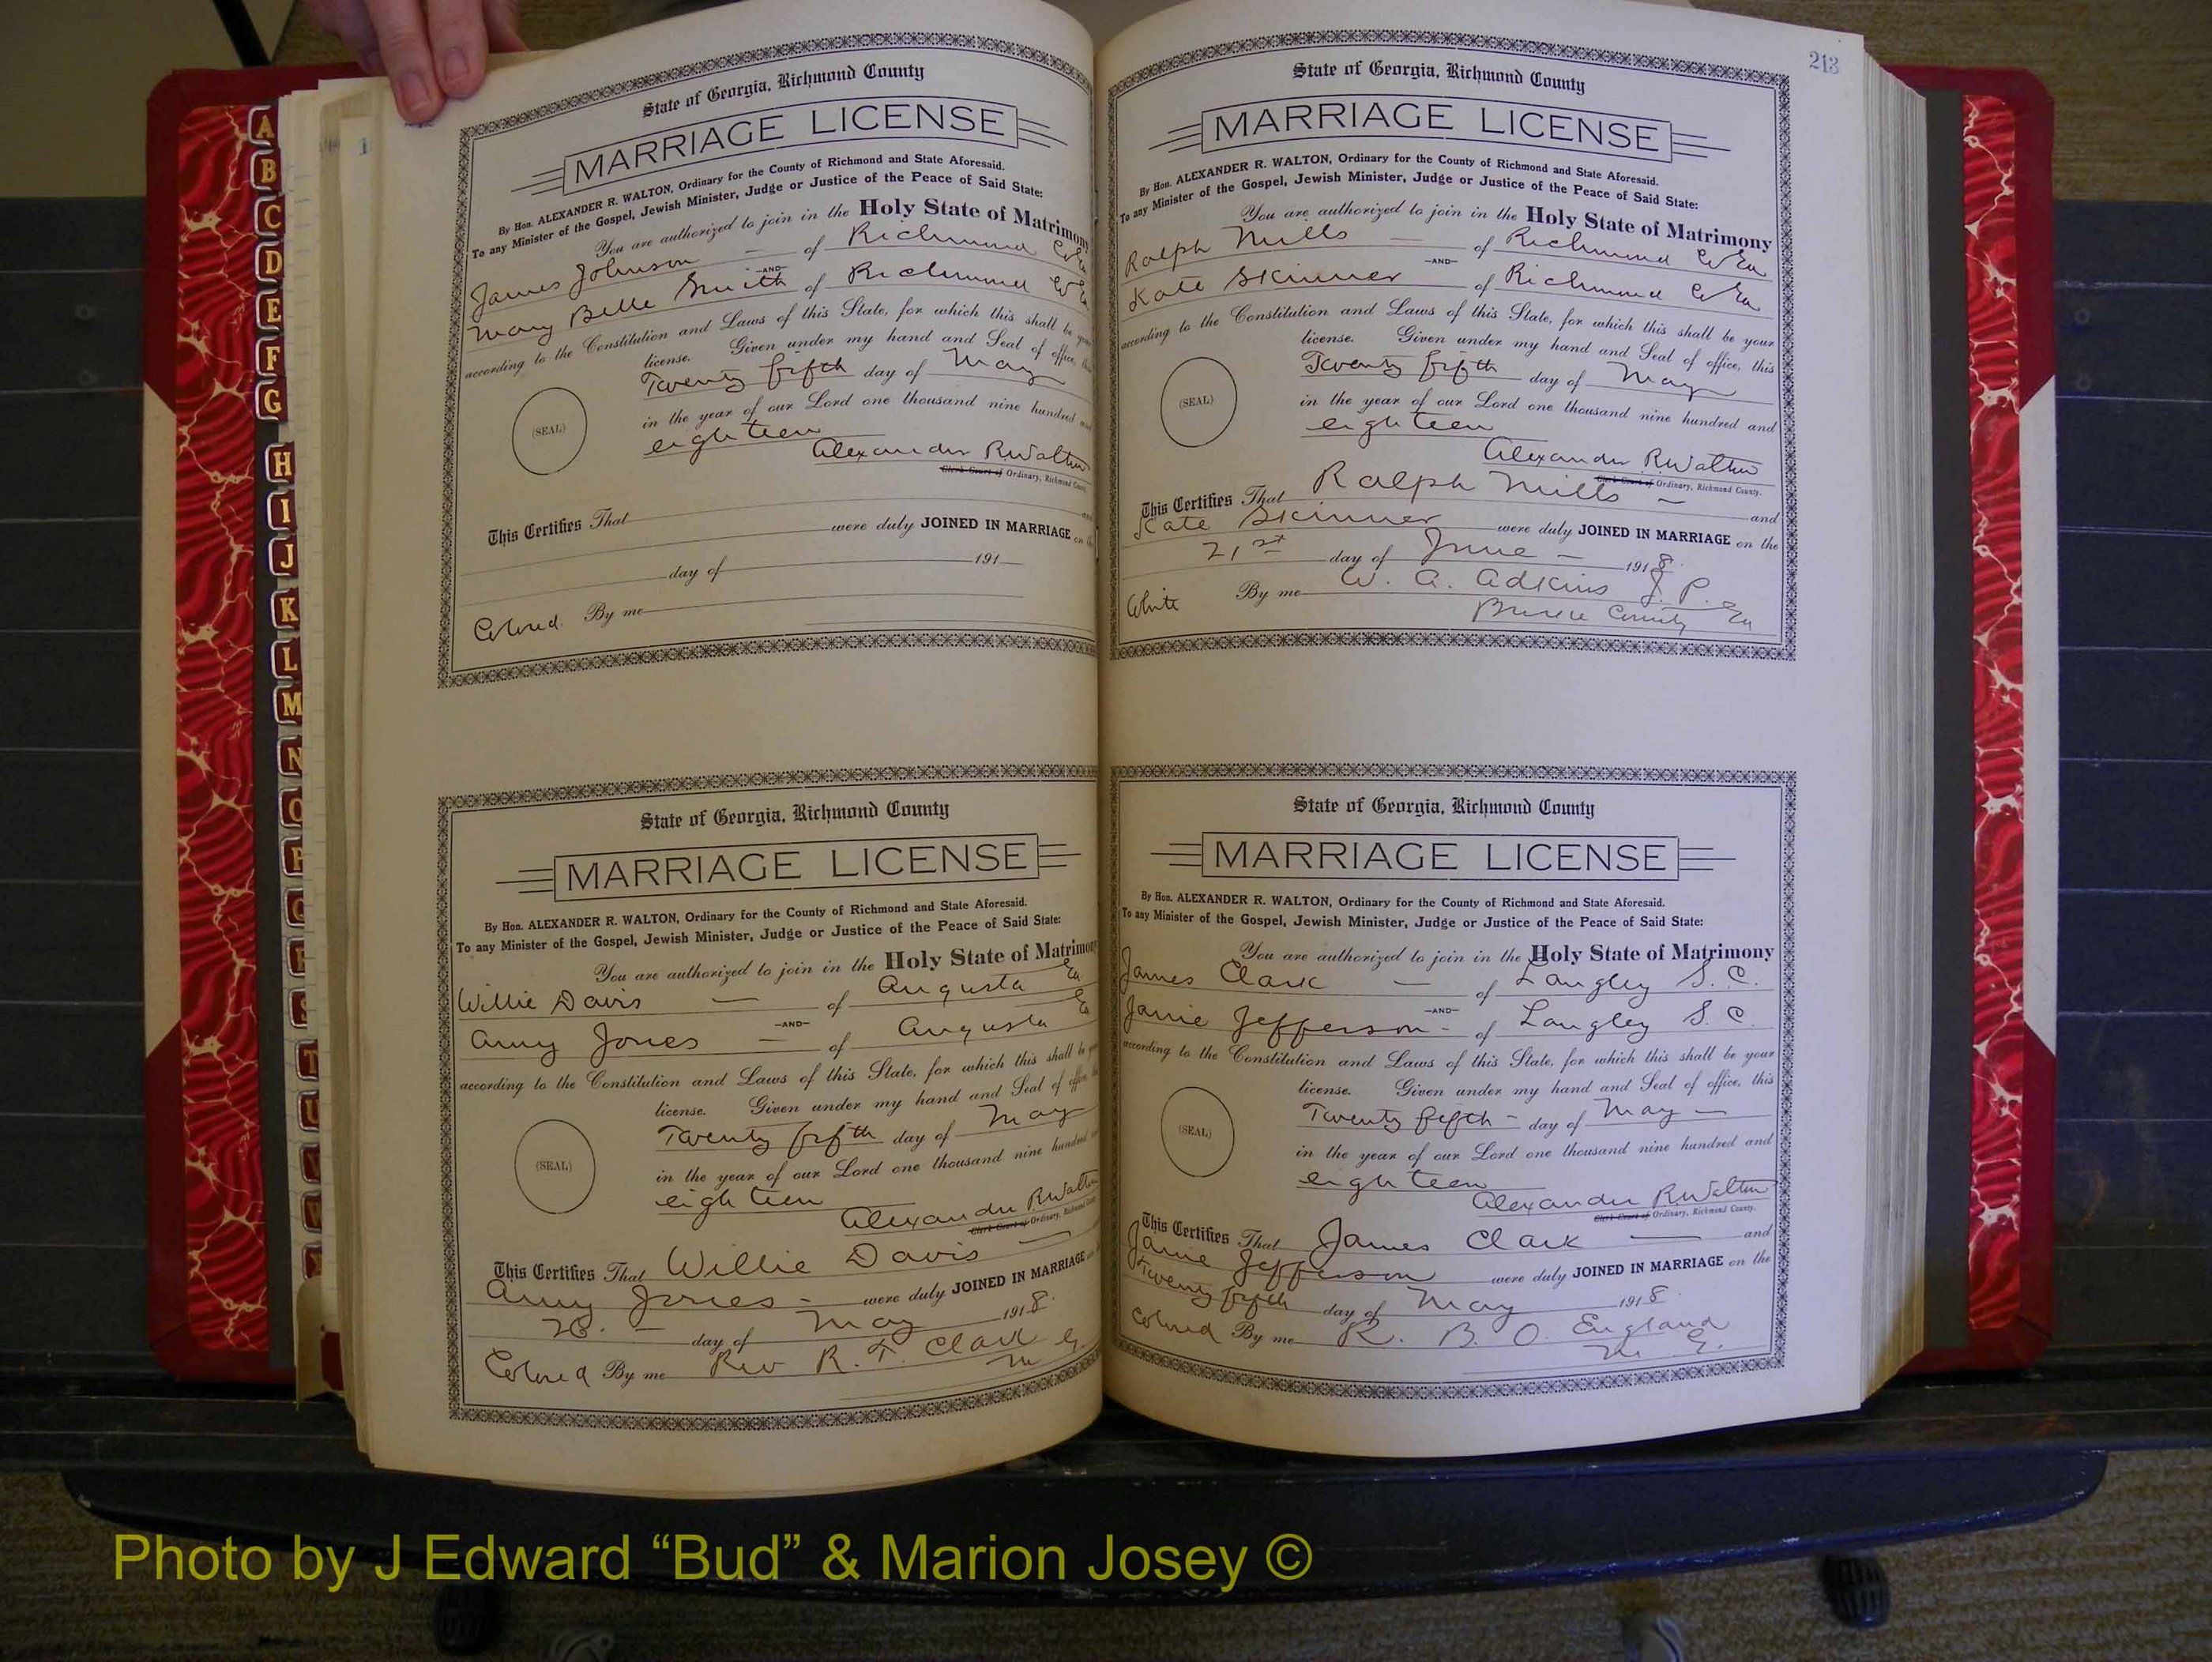 A
B
C
D
E
F
G
H
I
J
K
L
M
N
O
P
Q
R
S
T
U
V
W
State of Georgia, Richmond County
MARRIAGE LICENSE
By Hon. ALEXANDER R. WALTON, Ordinary for the County of Richmond and State Aforesaid.
To any Minister of the Gospel, Jewish Minister, Judge or Justice of the Peace of Said State:
You are authorized to join in the Holy State of Matrimony
James Johnson — of Richmond Co Ga
—AND—
Mary Belle Smith of Richmond Co Ga
according to the Constitution and Laws of this State, for which this shall be your
license. Given under my hand and Seal of office, this
Twenty fifth day of May
(SEAL)
in the year of our Lord one thousand nine hundred and
eighteen
Alexander R Walton
Clerk Court of Ordinary, Richmond County.
This Certifies That and
were duly JOINED IN MARRIAGE on the
day of 191
Colored. By me
State of Georgia, Richmond County
MARRIAGE LICENSE
By Hon. ALEXANDER R. WALTON, Ordinary for the County of Richmond and State Aforesaid.
To any Minister of the Gospel, Jewish Minister, Judge or Justice of the Peace of Said State:
You are authorized to join in the Holy State of Matrimony
Willie Davis — of Augusta Ga
—AND—
Anny Jones — of Augusta Ga
according to the Constitution and Laws of this State, for which this shall be your
license. Given under my hand and Seal of office, this
Twenty fifth day of May
(SEAL)
in the year of our Lord one thousand nine hundred and
eighteen
Alexander R Walton
Clerk Court of Ordinary, Richmond County.
This Certifies That Willie Davis —
Anny Jones — were duly JOINED IN MARRIAGE on
26. — day of May 1918.
Colored By me Rev R. T. Clark
M G.
213
State of Georgia, Richmond County
MARRIAGE LICENSE
By Hon. ALEXANDER R. WALTON, Ordinary for the County of Richmond and State Aforesaid.
To any Minister of the Gospel, Jewish Minister, Judge or Justice of the Peace of Said State:
You are authorized to join in the Holy State of Matrimony
Ralph Mills — of Richmond Co Ga
—AND—
Kate Skinner of Richmond Co Ga
according to the Constitution and Laws of this State, for which this shall be your
license. Given under my hand and Seal of office, this
Twenty fifth day of May
(SEAL)
in the year of our Lord one thousand nine hundred and
eighteen
Alexander R Walton
Clerk Court of Ordinary, Richmond County.
This Certifies That Ralph Mills — and
Kate Skinner were duly JOINED IN MARRIAGE on the
21st day of June — 1918.
White By me W. A. Adkins J. P.
County Ga
State of Georgia, Richmond County
MARRIAGE LICENSE
By Hon. ALEXANDER R. WALTON, Ordinary for the County of Richmond and State Aforesaid.
To any Minister of the Gospel, Jewish Minister, Judge or Justice of the Peace of Said State:
You are authorized to join in the Holy State of Matrimony
James Clark — of Langley S. C.
—AND—
Janie Jefferson - of Langley S. C
according to the Constitution and Laws of this State, for which this shall be your
license. Given under my hand and Seal of office, this
Twenty fifth - day of May —
(SEAL)
in the year of our Lord one thousand nine hundred and
eighteen
Alexander R Walton
Clerk Court of Ordinary, Richmond County.
This Certifies That James Clark — and
Janie Jefferson were duly JOINED IN MARRIAGE on the
Twenty fifth day of May 1918.
Colored By me R. B. O. England
M. G.
Photo by J Edward “Bud” & Marion Josey ©